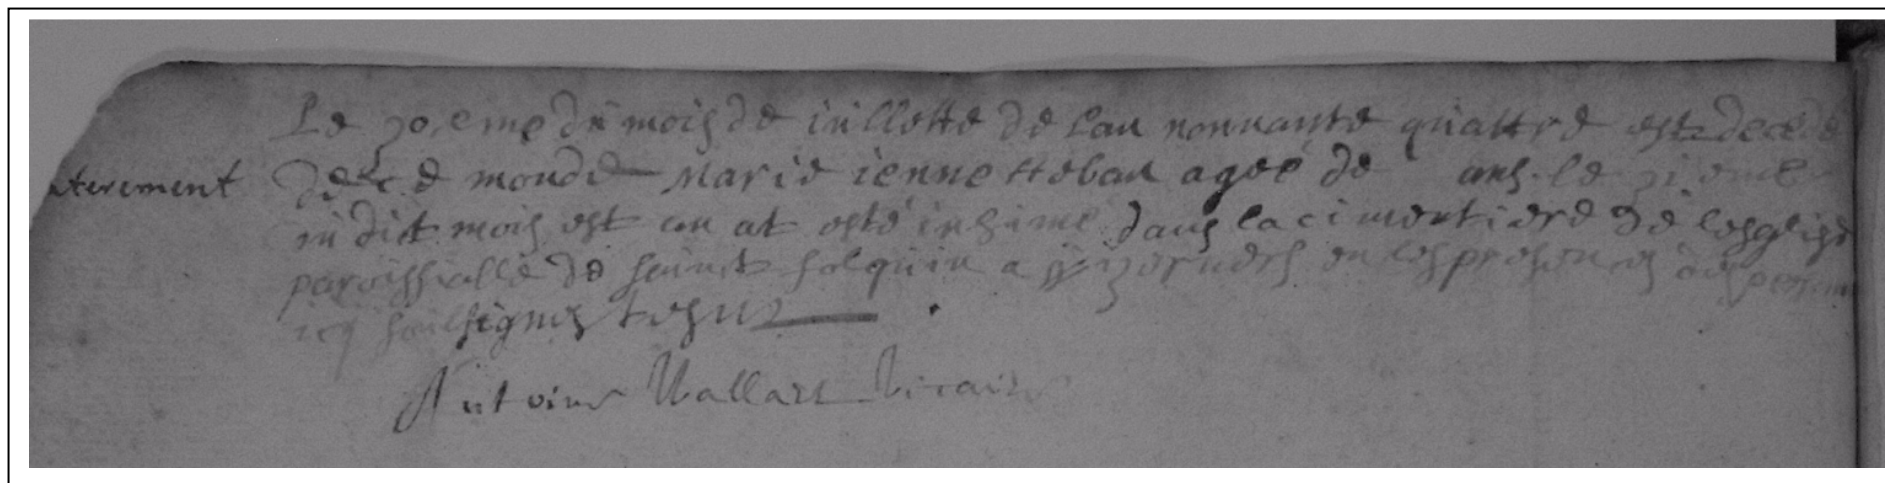 Le 30.eme du mois de iuillette de lan nonnante quattre est decedé
aterement
de ce monde Marie ienne Heban ageé de ans le 31 eme
du dict mois est an at esté inhumé dans la cimentiere de lesglise
paroissialle de sainct folquin a en les presences des
icy soulsignes
Antoine Wallart Vicair